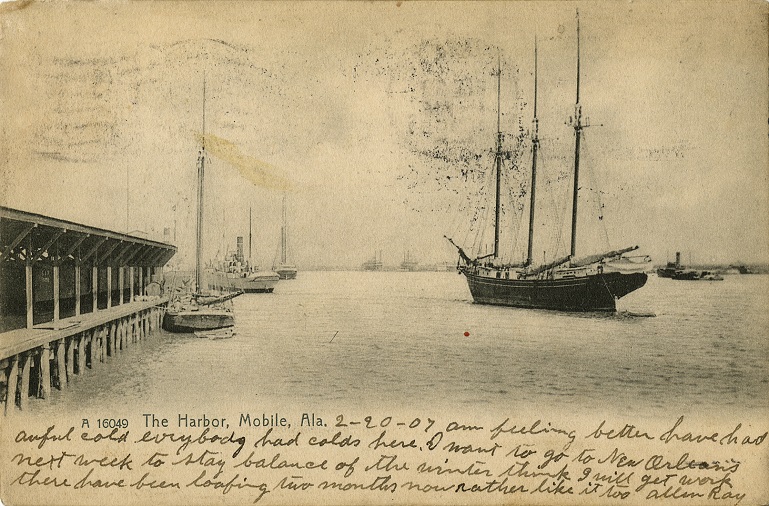 A 16049 The Harbor, Mobile, Ala. 2-20-07 am feeling better have had
awful cold everybody had colds here. I want to go to New Orleans
next week to stay balance of the winter think I will get work
there have been loafing two months now rather like it too allen Ray